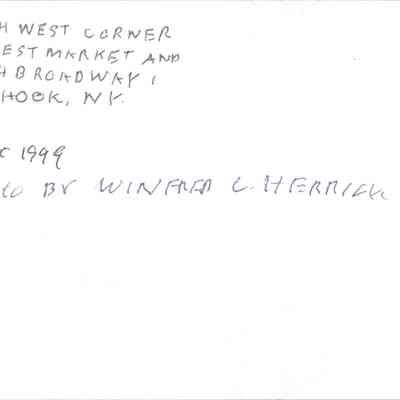 H WEST CORNER
EST MARKET AND
H BROADWAY,
HOOK, NY.
1999
BY WINFRED C. HERRICK